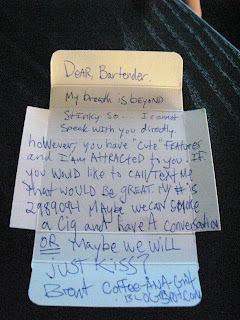 DEAR, Bartender,
My Breath is beyond
Stinky so... I cannot
Speak with you directly.
however, you have "Cute" Features
and I am ATTRACTED to you. IF
you would like to call/Text me
that WOULD BE GREAT. My # is
2989094 Maybe we can smoke
a Cig and have A conversation
OR Maybe we will
JUST KISS?
Brent